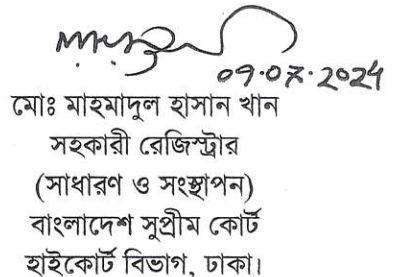 ০৭.০৮.২০২৪
মোঃ মাহমাদুল হাসান খান
সহকারী রেজিস্ট্রার
(সাধারণ ও সংস্থাপন)
বাংলাদেশ সুপ্রীম কোর্ট
হাইকোর্ট বিভাগ, ঢাকা।